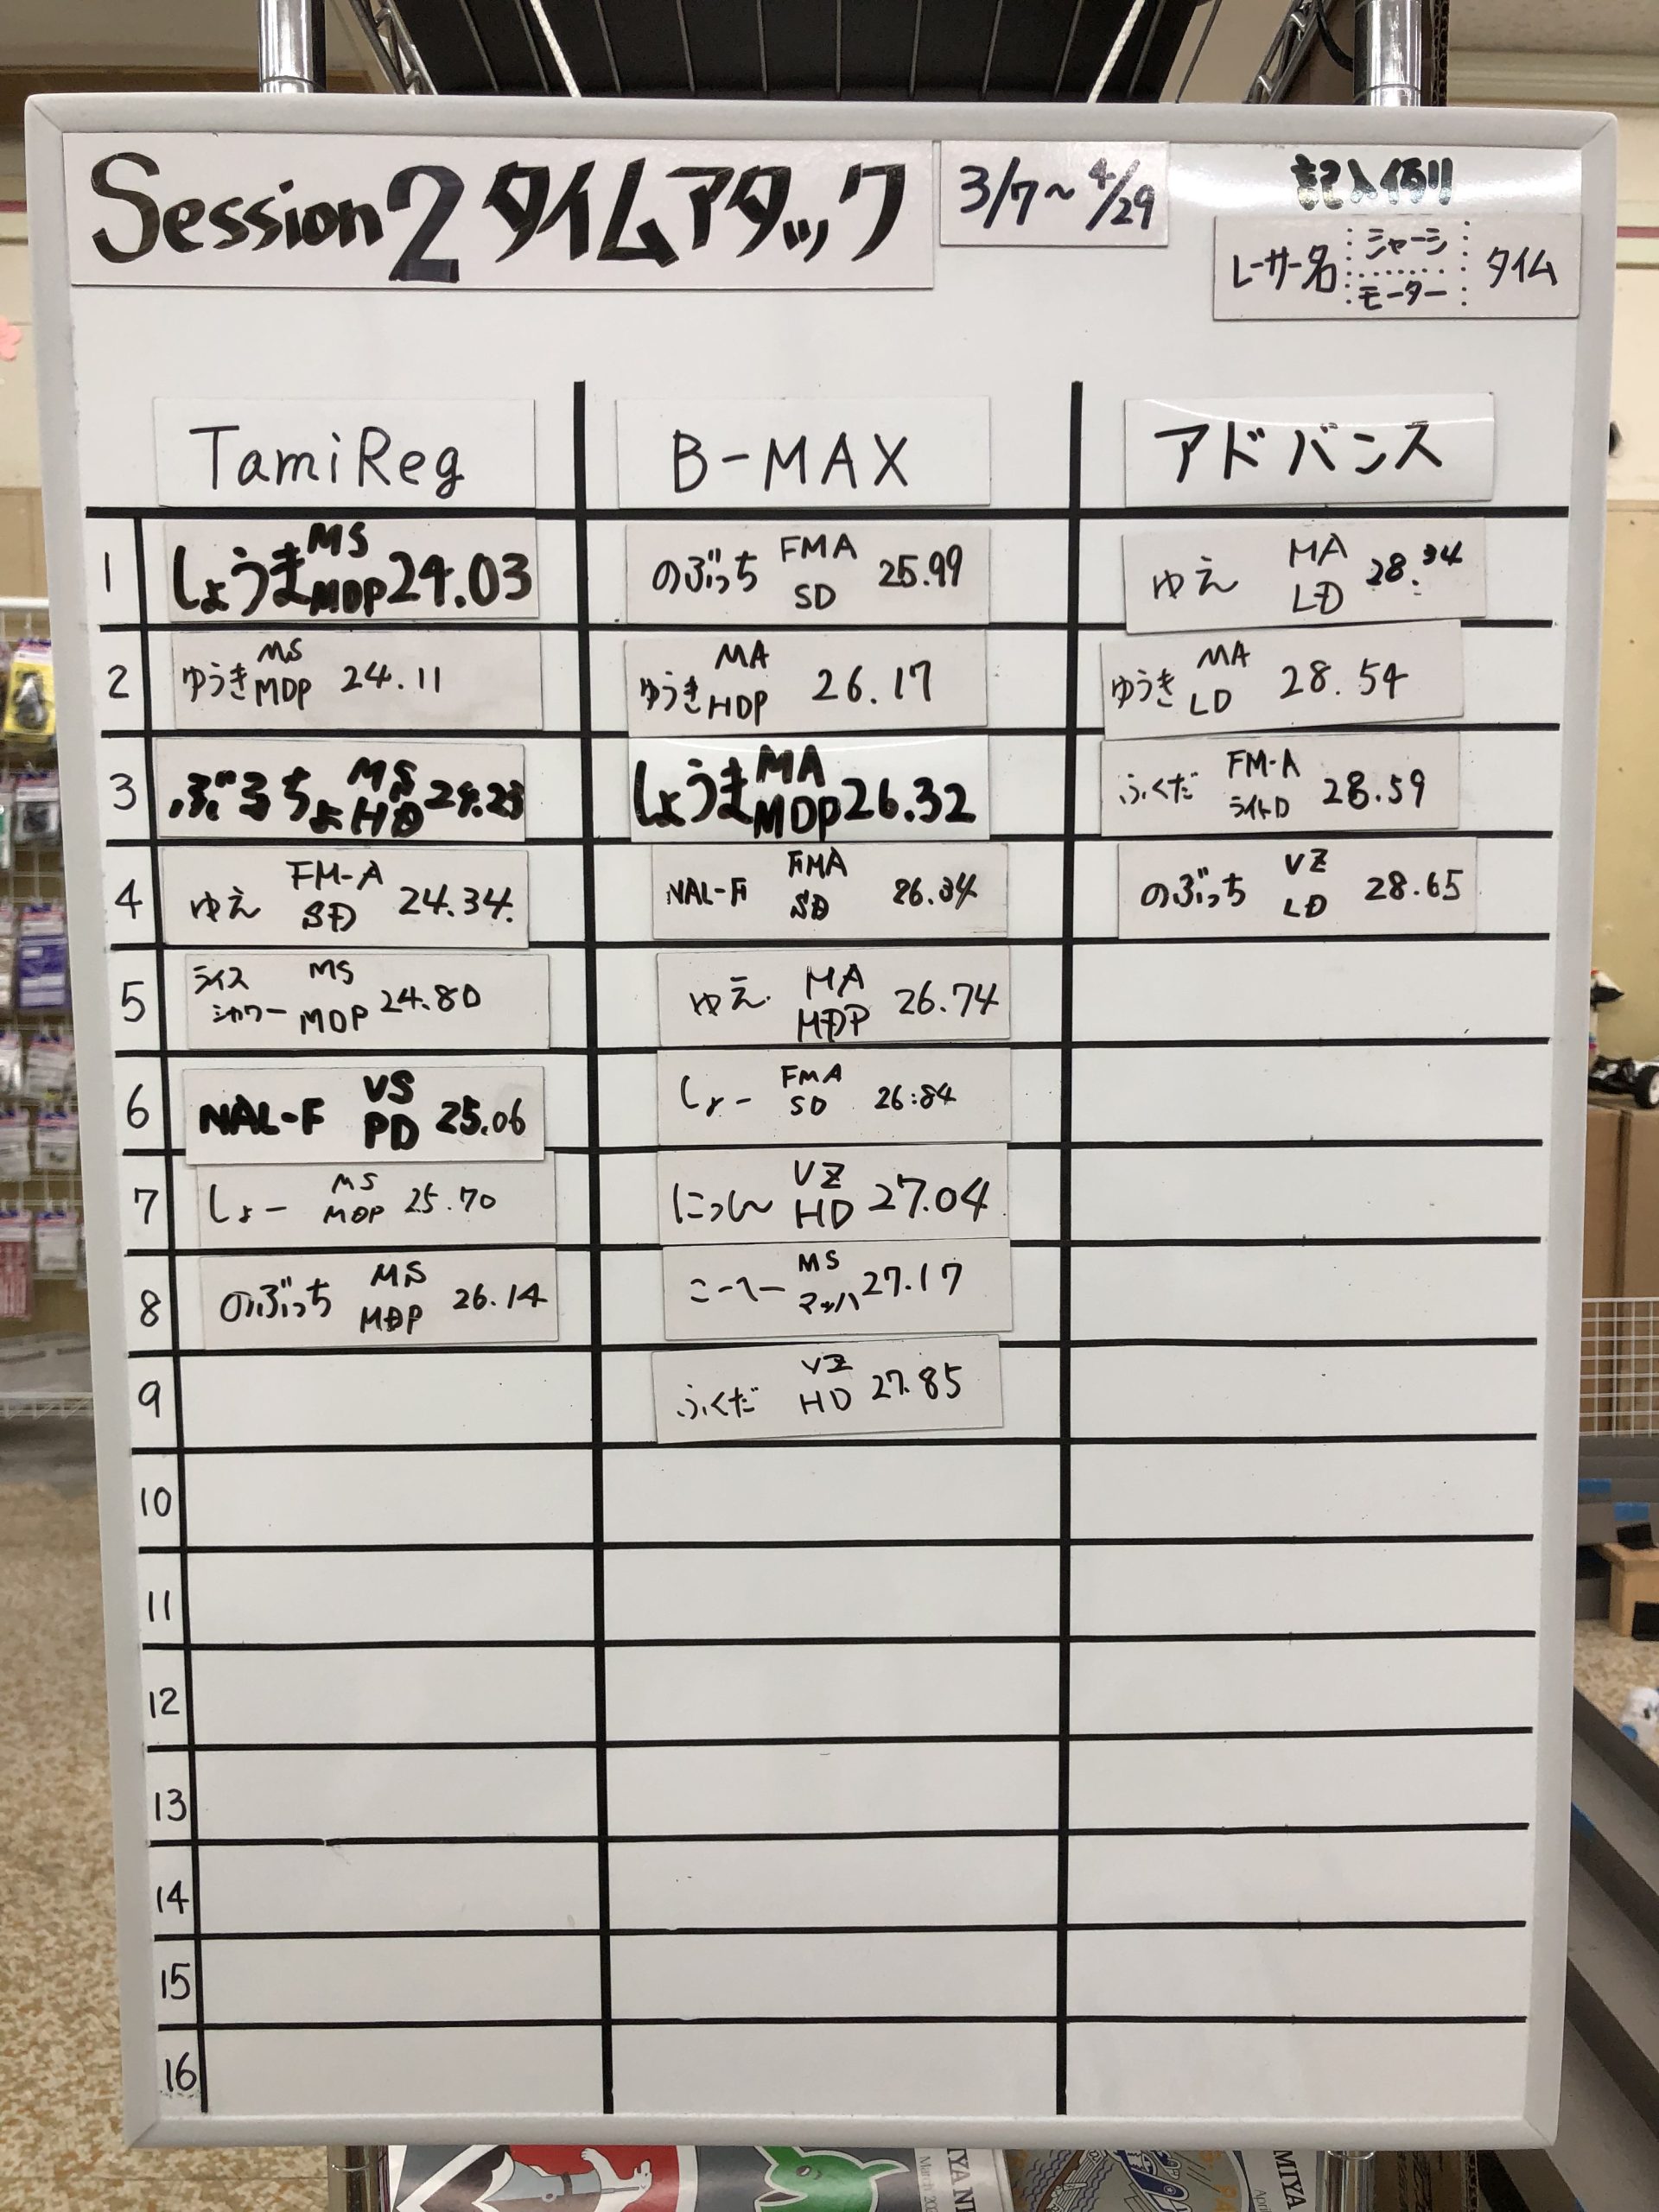 Session2 タイムアタック
3/7~4/29
記入例
レーサー名 シャーシ モーター タイム
TamiReg
B-MAX
アドバンス
1
しょうま MS MDP 24.03
のぶっち FMA SD 25.99
ゆえ MA LD 28.34
2
ゆうき MS MDP 24.11
ゆうき MA HDP 26.17
ゆうき MA LD 28.54
3
ぶるちょ MS HD
しょうま MA MDP 26.32
ふくだ FM-A ライトD 28.59
4
ゆえ FM-A SD 24.34
NAL-F FMA SD 26.34
のぶっち VZ LD 28.65
5
ライスシャワー MS MDP 24.80
ゆえ MA MDP 26.74
6
NAL-F VS PD 25.06
しょー FMA SD 26:84
7
しょー MS MDP 25.70
にっしん VZ HD 27.04
8
のぶっち MS MDP 26.14
こーへー MS マッハ 27.17
9
ふくだ VZ HD 27.85
10
11
12
13
14
15
16
March
April
MIYA